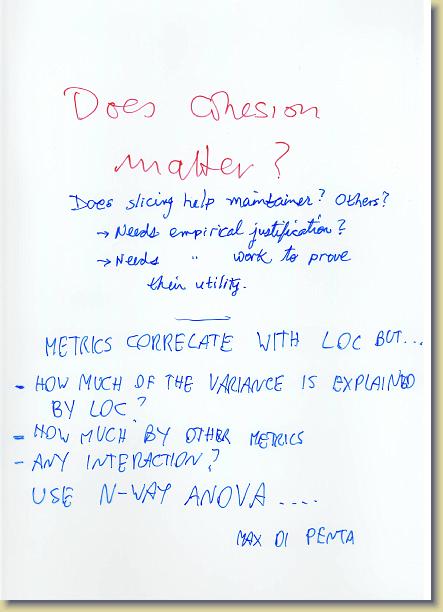 Does cohesion
matter?
Does slicing help maintainer? Others?
→ Needs empirical justification?
→ Needs " work to prove
their utility.
METRICS CORRELATE WITH LOC BUT...
- HOW MUCH OF THE VARIANCE IS EXPLAINED
BY LOC?
- HOW MUCH BY OTHER METRICS
- ANY INTERACTION?
USE N-WAY ANOVA ....
MAX DI PENTA